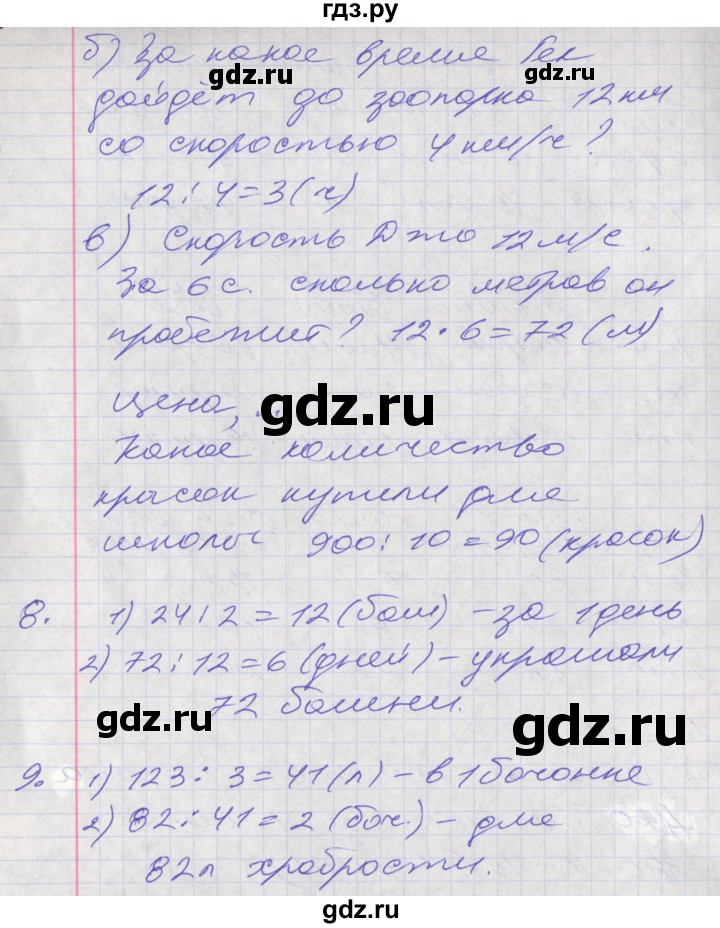 гдз.ру
б) За какое время Гек
дойдёт до зоопарка 12 км
со скоростью 4 км/ч?
12 : 4 = 3 (ч)
в) Скорость Джо 12 м/с.
За 6 с. сколько метров он
пробежит? 12 · 6 = 72 (м)
Цена, ...
Какое количество
красок купили для
школы 900 : 10 = 90 (красок)
8. 1) 24 : 2 = 12 (баш) – за 1 день
2) 72 : 12 = 6 (дней) – украшали
72 башни.
9. 1) 123 : 3 = 41 (л) – в 1 бочонке
2) 82 : 41 = 2 (боч.) – для
82 л храбрости.
gdz.ru
gdz.ru
gdz.ru
gdz.ru
gdz.ru
gdz.ru
gdz.ru
gdz.ru